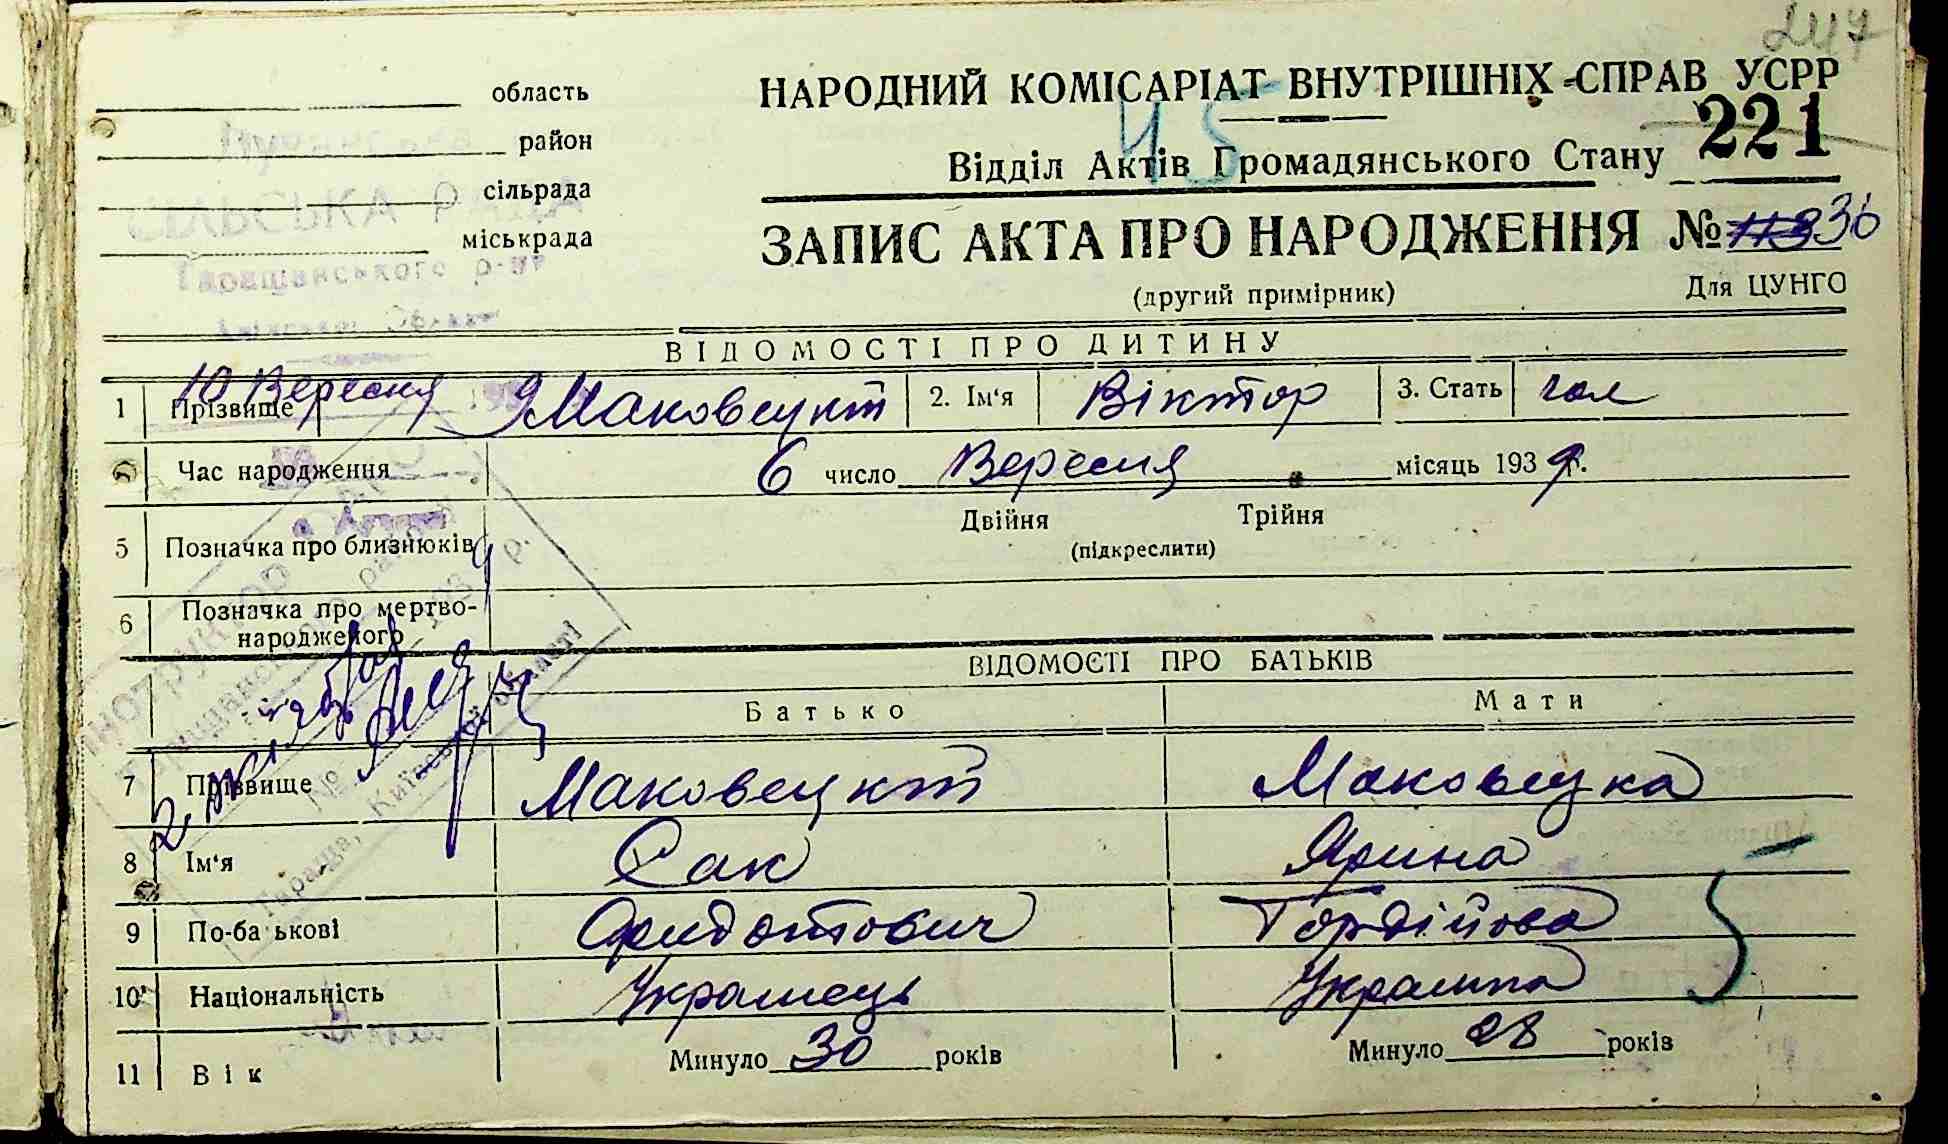 247
область
НАРОДНИЙ КОМІСАРІАТ ВНУТРІШНІХ СПРАВ УСРР
45
221
район
Відділ Актів Громадянського Стану
сільрада
СІЛЬСЬКА РАДА
міськрада
ЗАПИС АКТА ПРО НАРОДЖЕННЯ № 113 36
Таращанського р-ну
(другий примірник) Для ЦУНГО
ВІДОМОСТІ ПРО ДИТИНУ
10 Вересня 193
1 Прізвище Маковецький 2. Ім'я Віктор 3. Стать чол
Час народження 6 число Вересня місяць 1939 р.
Двійня Трійня
5 Позначка про близнюків (підкреслити)
6 Позначка про мертво-
народженого
ВІДОМОСТІ ПРО БАТЬКІВ
Батько Мати
7 Прізвище Маковецкий Маковецка
8 Ім'я Сак Ярина
9 По-ба ькові Гордійова
10 Національність Українець Українка
11 Вік Минуло 30 років Минуло 28 років
Інструктор
Таращанського
193 9 р.
№
Тараща, Київської області